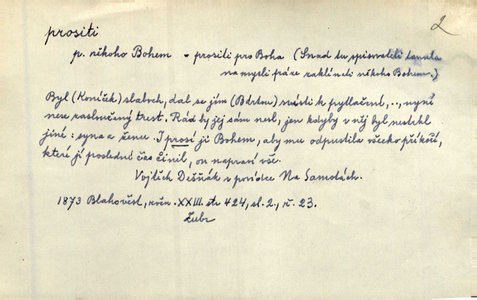 2
prositi
p. někoho Bohem - prositi pro Boha (Snad tu spisovateli tanula
na mysli fráze zaklínati někoho Bohem.)
Byl (Koníček) slaboch, dal se jím (Bártem) svésti k pytlačení, .., nyní
nese zasloužený trest. Rád by jej sám nesl, jen kdyby v něj byl nestrhl
jiné: syna a ženu. I prosí ji Bohem, aby mu odpustila všecko příkoří,
které jí poslední čas činil, on napraví vše.
Vojtěch Dešňák v povídce Na Samotách.
1873 Blahověst, roč. XXIII. str 424, sl. 2., ř. 23.
Zubr